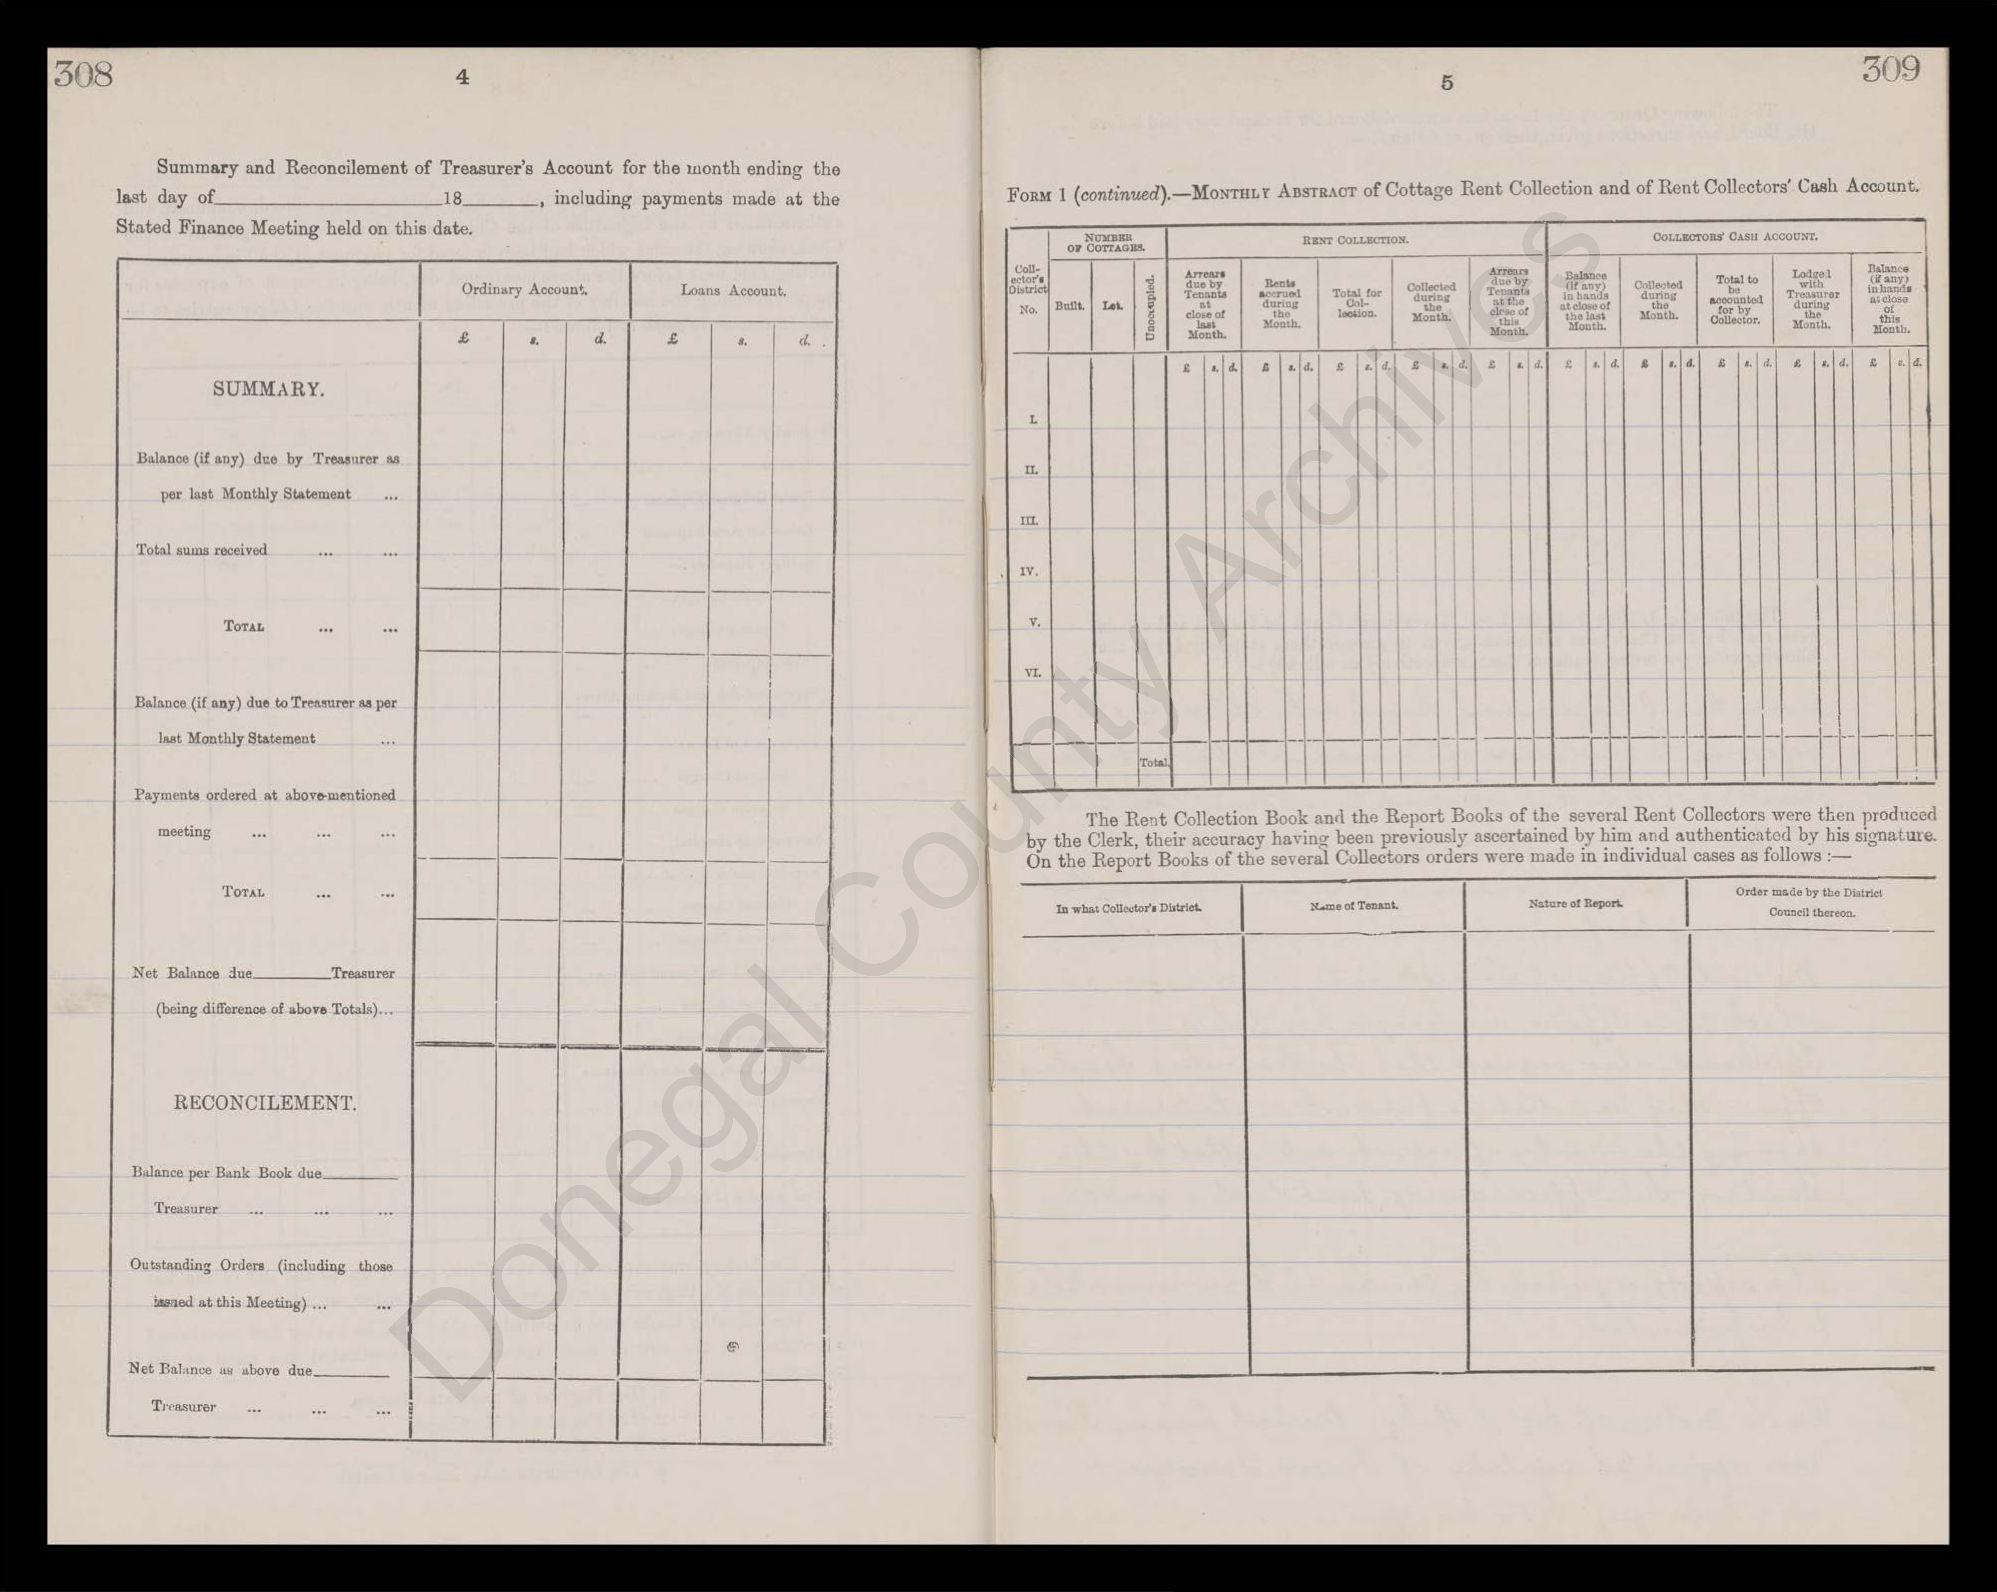 308
4
Summary and Reconcilement of Treasurer's Account for the month ending the
last day of__________18______, including payments made at the
Stated Finance Meeting held on this date.
Ordinary Account. Loans Account.
£ s. d. £ s. d.
SUMMARY.
Balance (if any) due by Treasurer as
per last Monthly Statement ...
Total sums received ... ...
TOTAL ... ...
Balance (if any) due to Treasurer as per
last Monthly Statement ...
Payments ordered at above-mentioned
meeting ... ... ...
TOTAL ... ...
Net Balance due______Treasurer
(being difference of above Totals)...
RECONCILEMENT.
Balance per Bank Book due______
Treasurer ... ... ...
Outstanding Orders (including those
issued at this Meeting) ... ...
Net Balance as above due______
Treasurer ... ... ...
5
309
FORM 1 (continued).—MONTHLY ABSTRACT of Cottage Rent Collection and of Rent Collectors' Cash Account.
Collector's District No.
NUMBER OF COTTAGES.
Built. Let. Unoccupied.
RENT COLLECTION.
Arrears due by Tenants at close of last Month.
Rents accrued during the Month.
Total for Collection.
Collected during the Month.
Arrears due by Tenants at the close of this Month.
COLLECTORS' CASH ACCOUNT.
Balance (if any) in hands at close of the last Month.
Collected during the Month.
Total to be accounted for by Collector.
Lodged with Treasurer during the Month.
Balance (if any) in hands at close of this Month.
£ s. d. £ s. d. £ s. d. £ s. d. £ s. d. £ s. d. £ s. d. £ s. d. £ s. d. £ s. d.
I.
II.
III.
IV.
V.
VI.
Total.
The Rent Collection Book and the Report Books of the several Rent Collectors were then produced
by the Clerk, their accuracy having been previously ascertained by him and authenticated by his signature.
On the Report Books of the several Collectors orders were made in individual cases as follows :—
In what Collector's District. Name of Tenant. Nature of Report. Order made by the District
Council thereon.
Donegal County Archives